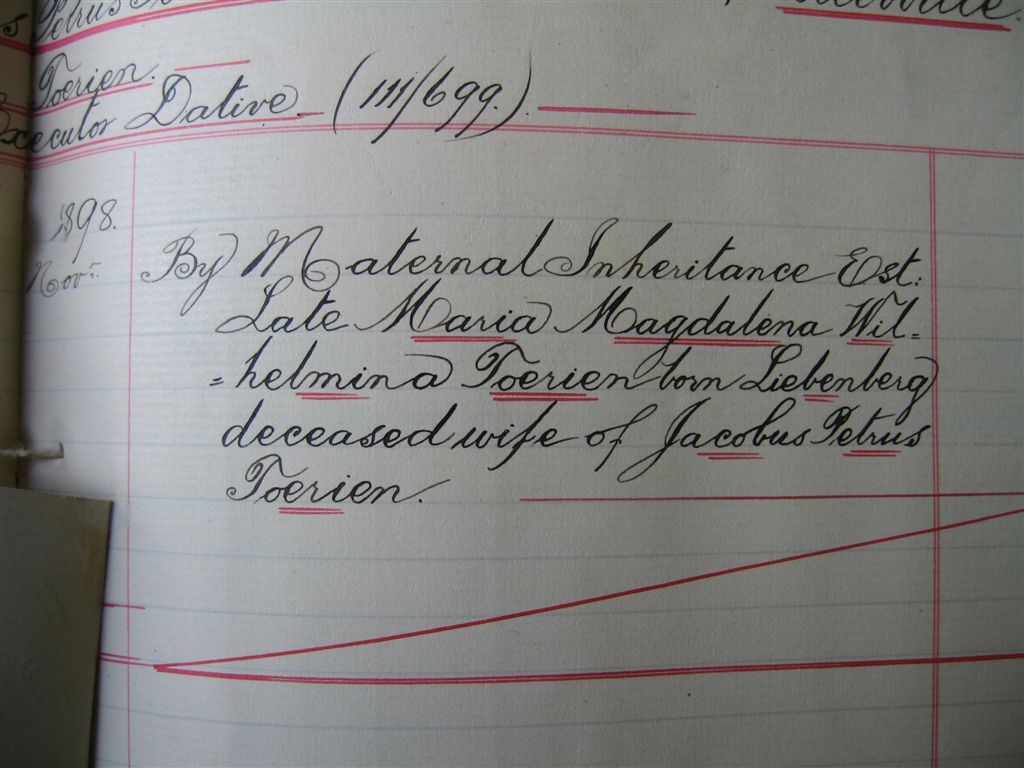 Petrus
Toerien.
Executor Dative (111/699.)
1898.
Novr.
By Maternal Inheritance Est:
Late Maria Magdalena Wil=
=helmina Toerien born Liebenberg
deceased wife of Jacobus Petrus
Toerien.